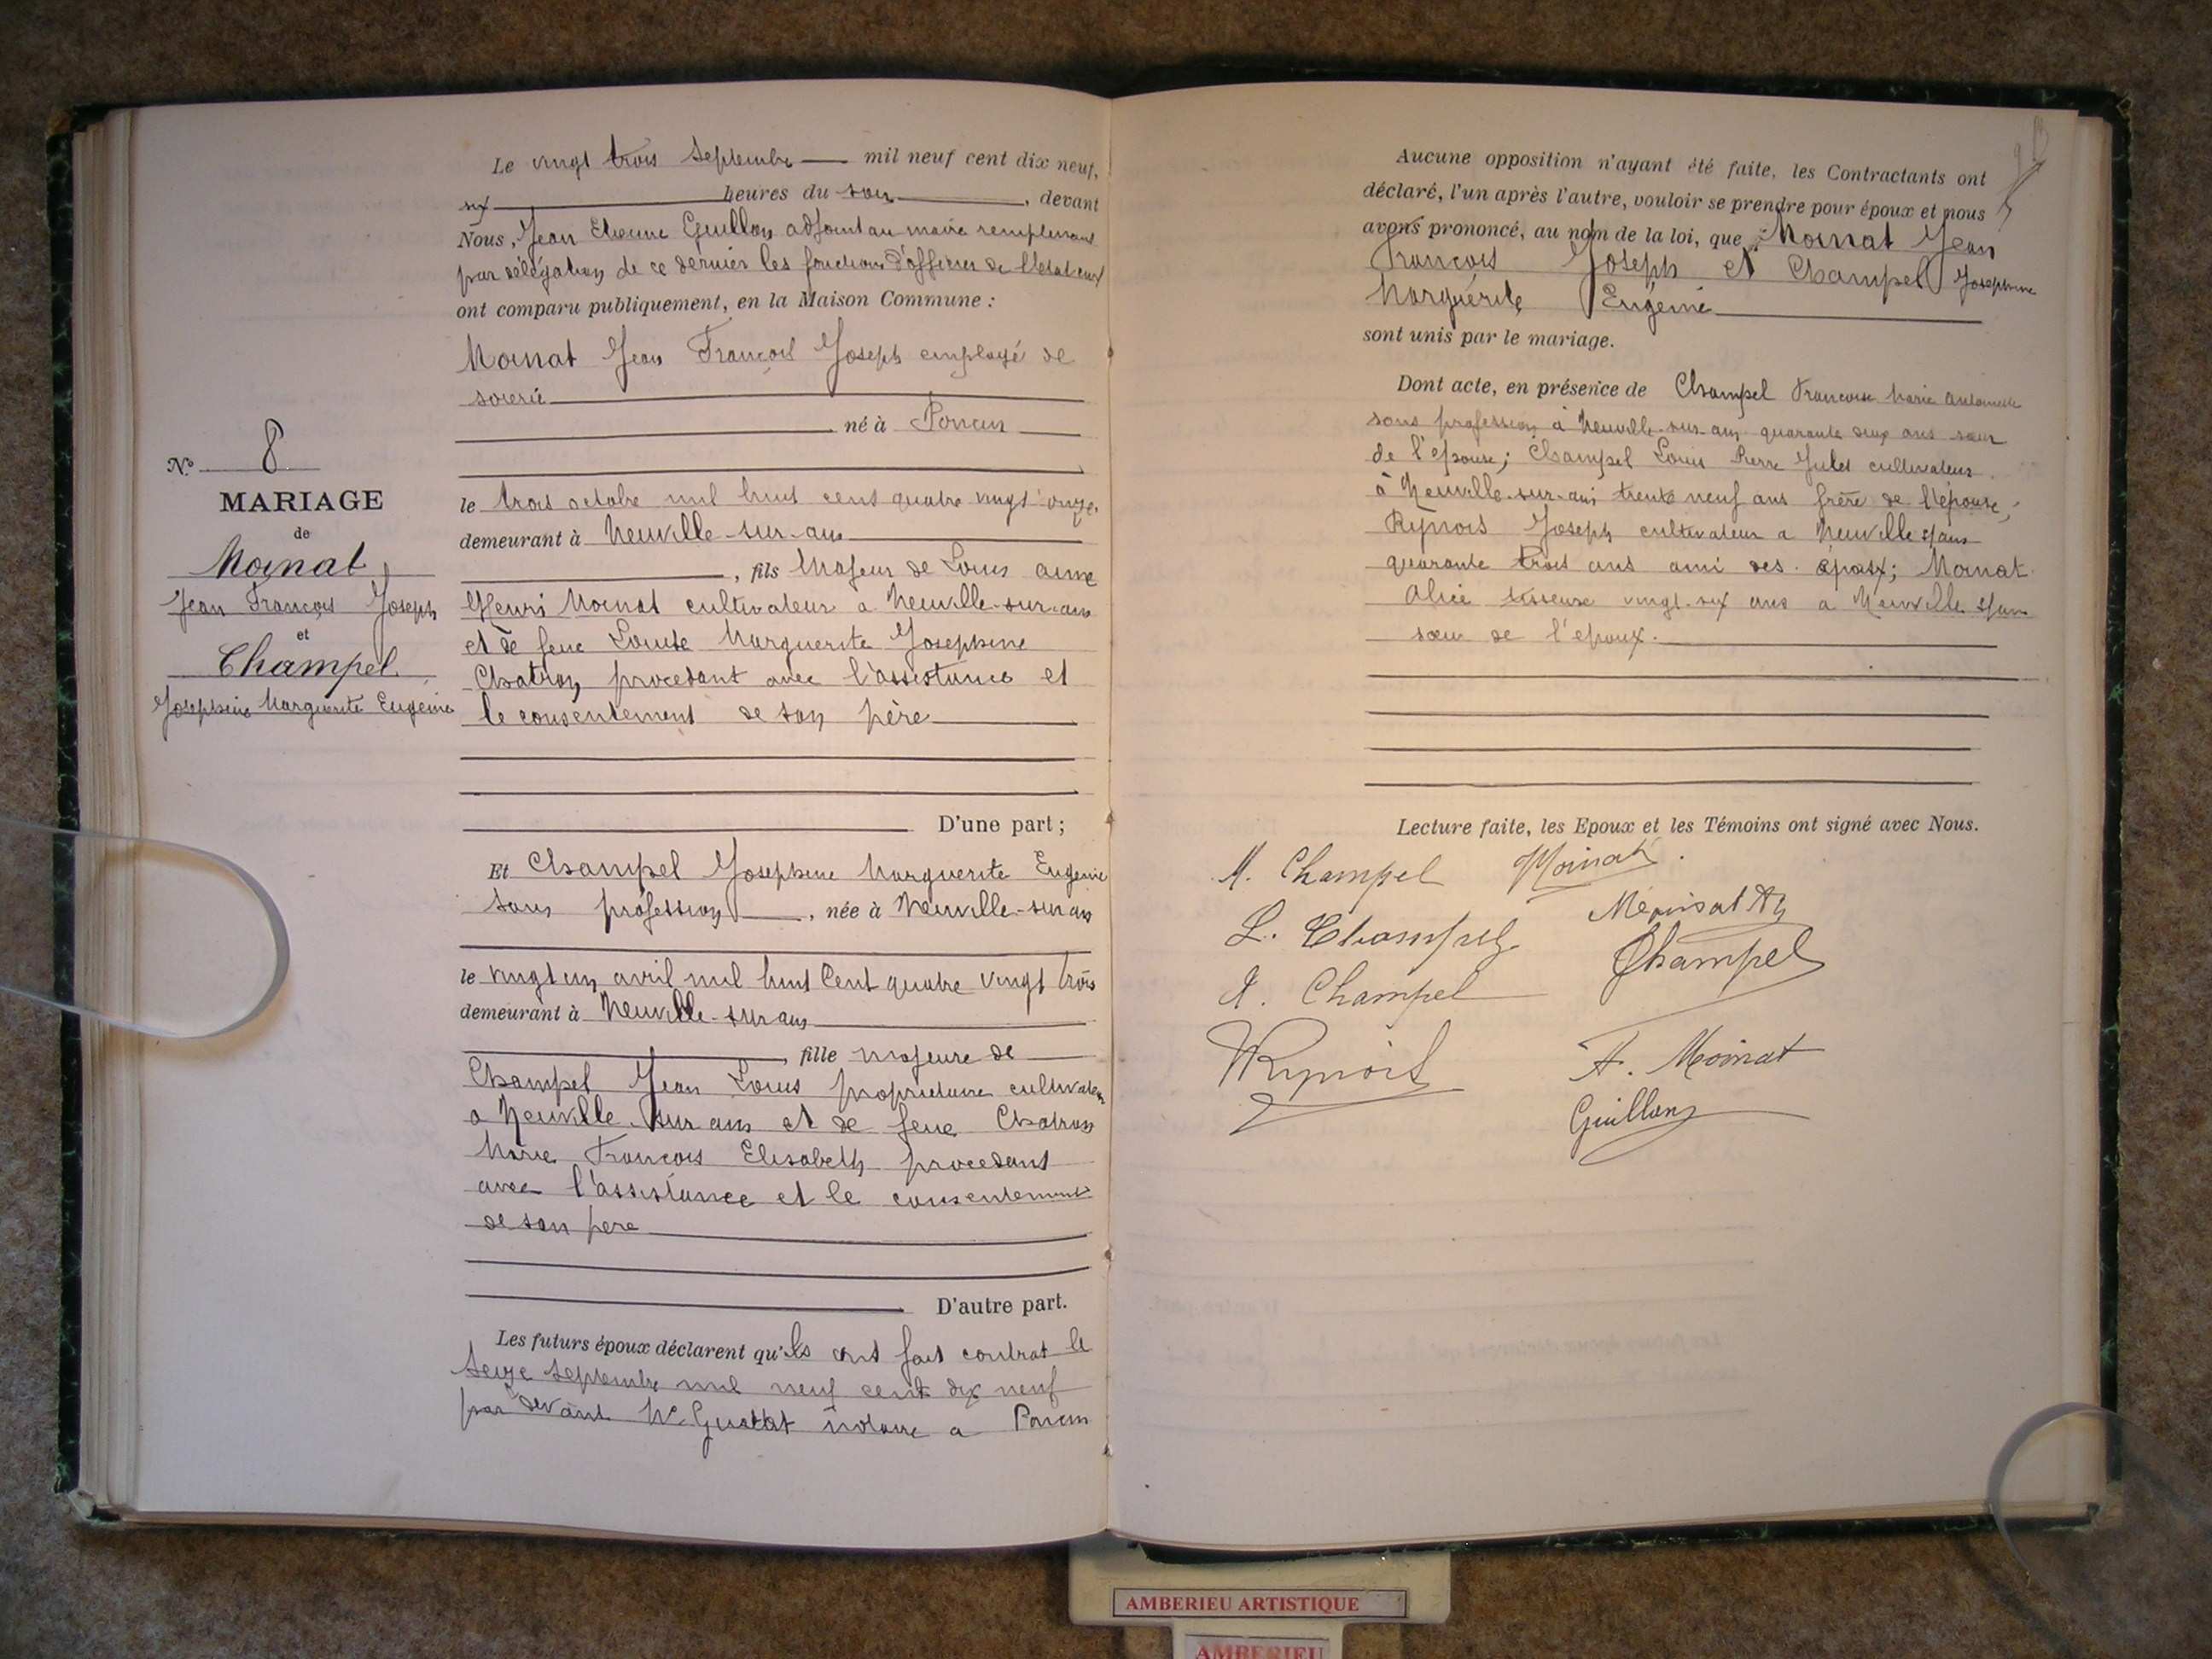 Le vingt trois Septembre mil neuf cent dix neuf,
six heures du soir, devant
Nous, Jean Etienne Guillon adjoint au maire remplissant
par délégation de ce dernier les fonctions d'officier de l'état civil
ont comparu publiquement, en la Maison Commune :
Moinat Jean François Joseph employé de
soierie
né à Poncin
le trois octobre mil huit cent quatre vingt onze,
demeurant à Neuville-sur-ain
, fils Majeur de Louis aimé
Henri Moinat cultivateur a Neuville-sur-ain
et de feue Louise Marguerite Josephine
Chatron procedant avec l'assistance et
le consentement de son père
D'une part ;
Et Champel Josephine Marguerite Eugenie
sans profession, née à Neuville-sur ain
le vingt un avril mil huit Cent quatre vingt trois
demeurant à Neuville-sur ain
, fille majeure de
Champel Jean Louis propriétaire cultivateur
a Neuville sur ain et de feue Chatron
Marie François Elisabeth procedant
avec l'assistance et le consentement
de son pere
D'autre part.
Les futurs époux déclarent qu'ils ont fait contrat le
seize septembre mil neuf cent dix neuf
par devant Me notaire a Poncin
No 8
MARIAGE
de
Moinat
Jean François Joseph
et
Champel
Josephine Marguerite Eugénie
Aucune opposition n'ayant été faite, les Contractants ont
déclaré, l'un après l'autre, vouloir se prendre pour époux et nous
avons prononcé, au nom de la loi, que Moinat Jean
François Joseph et Champel Josephine
Marguérite Eugénie
sont unis par le mariage.
Dont acte, en présence de Champel Francoise Marie Antoinette
sans profession à Neuville-sur-ain quarante deux ans sœur
de l'épouse; Champel Louis Pierre Jules cultivateur
à Neuville-sur-ain trente neuf ans frère de l'épouse;
Reynois Joseph cultivateur a Neuville s/ain
quarante trois ans ami des époux; Moinat
Alice tisseuse vingt-six ans a Neuville s/ain
sœur de l'epoux.
Lecture faite, les Epoux et les Témoins ont signé avec Nous.
M. Champel Moinat
L. Champel
A. Champel Champel
A. Moinat
Guillon
AMBERIEU ARTISTIQUE
AMBERIEU